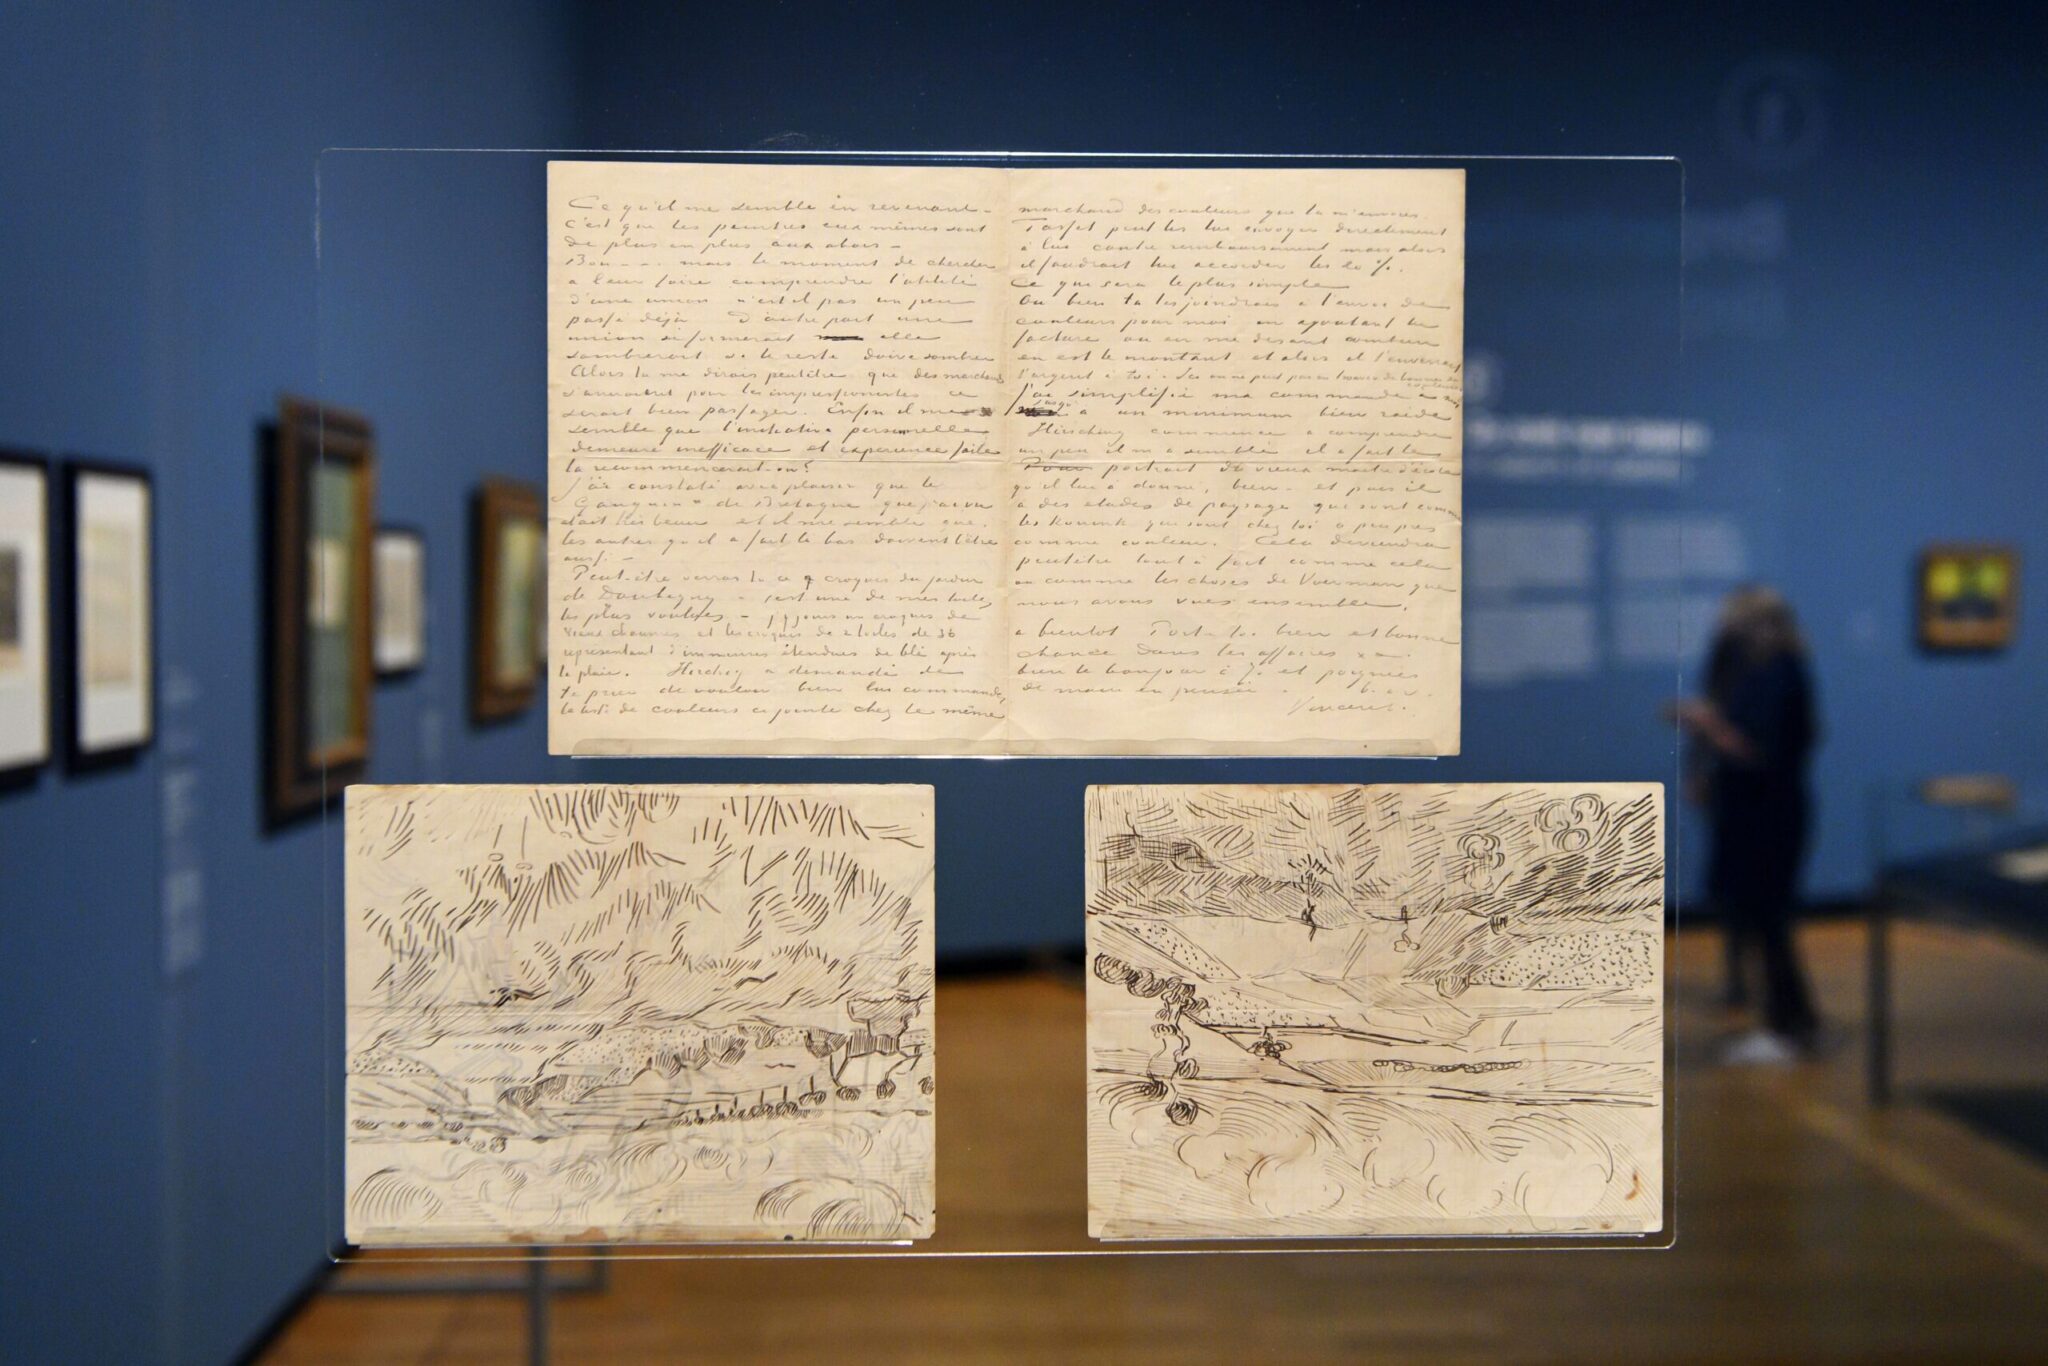 Ce qu'il me semble en revenant –
c'est que les peintres eux mêmes sont
de plus en plus aux abois –
Bon – – – mais le moment de chercher
à leur faire comprendre l'utilité
d'une union n'est il pas un peu
passé déjà D'autre part une
union si formerait elle
sombrerait si le reste doive sombrer
Alors tu me dirais peutêtre que des marchands
s'uniraient pour les impressionistes ce
serait bien passager. Enfin il me
semble que l'initiative personnelle
demeure inefficace et expérience faite
la recommencerait-on?
J'ai constaté avec plaisir que le
Gauguin de Bretagne que j'ai vu
était très beau et il me semble que
les autres qu'il a fait là bas doivent l'être
aussi –
Peut-être verras tu ce croquis du jardin
de Daubigny – c'est une de mes toiles
les plus voulues – j'y joins un croquis de
vieux chaumes et les croquis de 2 toiles de 30
représentant d'immenses étendues de blé après
la pluie. Hirschig a demandé de
te prier de vouloir bien lui commander
la liste de couleurs ci jointe chez le même
marchand des couleurs que tu m'envoies.
Tasset peut les lui envoyer directement
à lui contre remboursement mais alors
il faudrait lui accorder les 20 %.
Ce que sera le plus simple
Ou bien tu les joindrais à l'envoi de
couleurs pour moi en ajoutant la
facture ou en me disant combien
en est le montant et alors il t'enverrait
l'argent à toi. Ici on ne peut pas en trouver de bonnes de
couleurs
J'ai simplifié ma commande à moi
jusqu'
à un minimum bien raide
Hirschig commence à comprendre
un peu il m'a semblé il a fait le
Pour portrait du vieux maître d'école
qu'il lui a donné, bien – et puis il
a des études de paysage qui sont comme
les Konink qui sont chez toi à peu près
comme couleur. Cela deviendra
peutêtre tout à fait comme cela
ou comme les choses de Voerman que
nous avons vues ensemble.
à bientôt Porte toi bien et bonne
chance dans les affaires &a
bien le bonjour à Jo et poignées
de main en pensée. t. à. t.
Vincent.